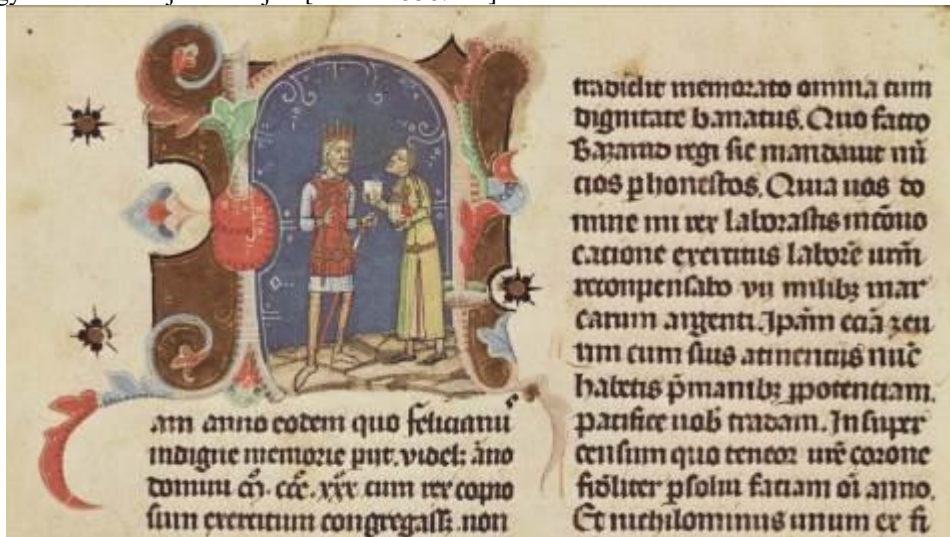 Nam anno eodem quo feliciani9
indigne memorie piit. videl: āno
domini m̄. ccc̄. xxx cum rex copio
sum exercitum congregasset. non
tradidit memorato omnia cum
dignitate banatus. Quo facto
Bazarad regi sic mandauit nū
cios p honestos. Quia uos do
mine mi rex laborastis incōuo
catione exercitus laborē urm̄
reconpensabo vii milibz mar
carum argenti. Ipām eciā zeu
rim cum suis attinenciis nūc
habetis p̄manibz p potentiam.
pacifice uob tradam. Insuper
censum quo teneor ure corone
fidliter psolui faciam oī anno.
Et nichilominus unum ex fi